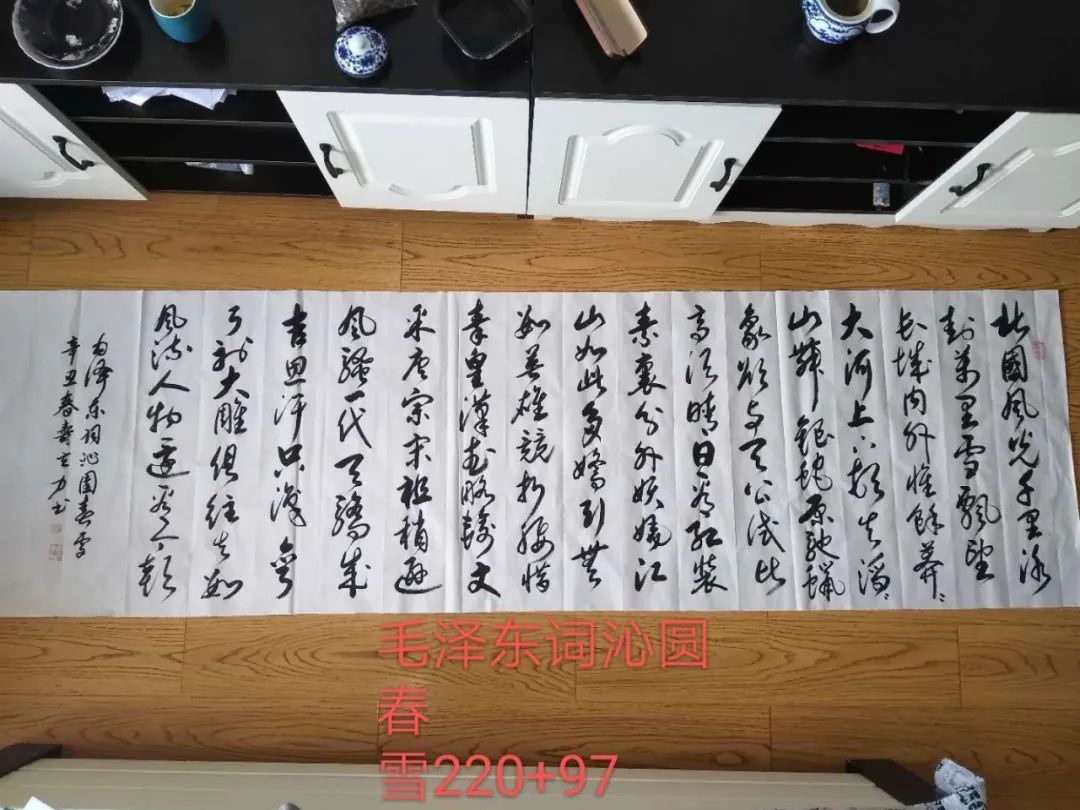 北國風光千里冰
封萬里雪飄望
长城内外惟餘莽〻
大河上下頓失滔〻
山舞銀蛇原馳蠟
象欲与天公试比
高须晴日看红装
素裹分外妖娆江
山如此多嬌引無
数英雄競折腰惜
秦皇漢武略输文
采唐宗宋祖稍遜
風騷一代天驕成
吉思汗只識彎
弓射大雕俱往矣数
風流人物還看今朝
毛泽东词沁園春雪
辛丑春寿力书
毛泽东词沁圆
春
雪220+97